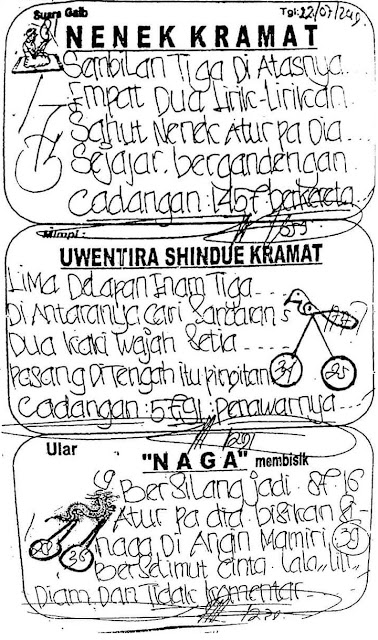 Suara Gaib
Tgl: 22/07/2019
NENEK KRAMAT
Sembilan Tiga Di Atasnya...
Empat Dua Lirik-Lirikan
Sahut Nenek Atur pa Dia...
Sejajar bergandengan
Cadangan: 1457 berkereta...
Mimpi:
UWENTIRA SHINDUE KRAMAT
LIMA Delapan Enam Tiga...
Di Antaranya cari Sandaran
Dua kaki Wajah Setia...
Pasang Di Tengah itu
25
Cadangan: 5791: Penawarnya...
Ular
"NAGA" membisik
Bersilang jadi 87-16
Atur pa dia bisikan
naga Di Angin Mamiri
Berselimut cinta lala, lili,
Diam Dan Tidak komentar